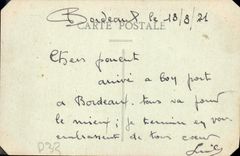 Bordeaux, le 13/8/21
CARTE POSTALE
Chers parents
arrivé a bon port
a Bordeaux. tous va pour
le mieux ; je termine en vous
embrassant de tous cœur